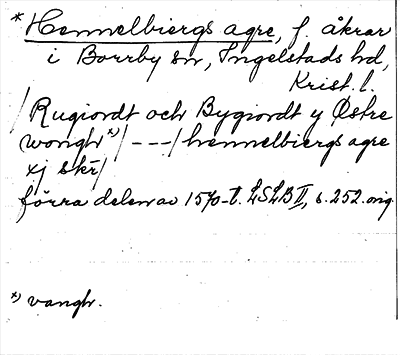 * Hennelbiergs agre, f. åkrar
i Borrby sn, Ingelstads hd,
Krist. l.
/Rugiordt och Bygiordt y Østre
wongh *)/---/hennelbiergs agre
xj skr/
förra delen av 1570-t. LSLB II, s. 252. orig.
*) vangh.